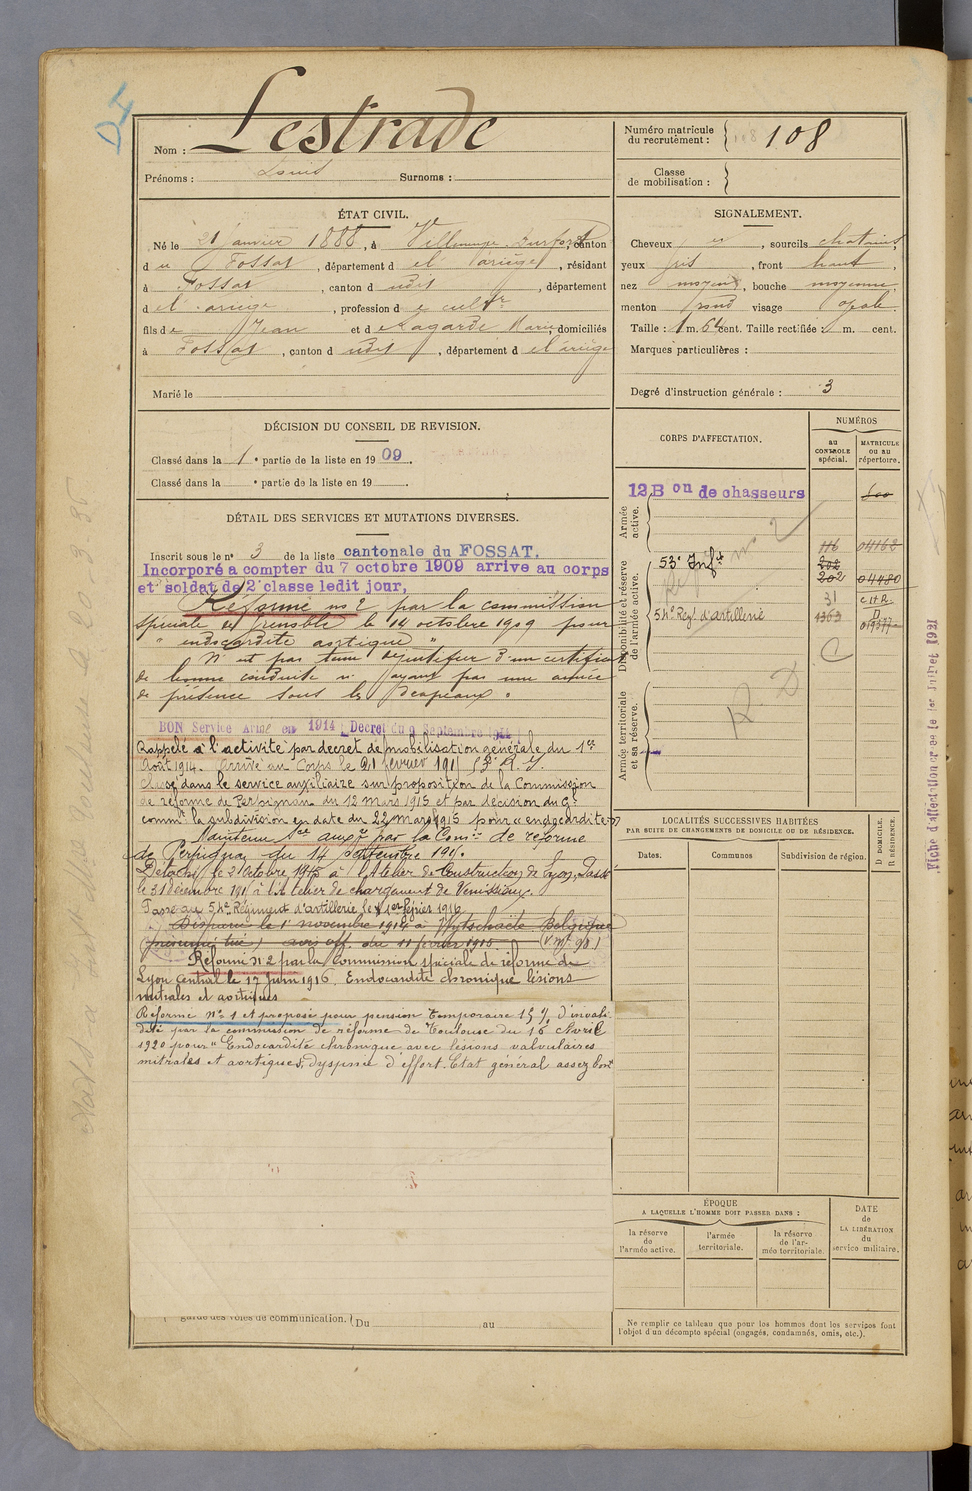 Lestrade
Nom :
Prénoms : Louis Surnoms :
Numéro matricule du recrutement : 108
Classe de mobilisation :
ÉTAT CIVIL.
Né le 21 Janvier 1888, à Villeneuve Durfort, canton
du Fossat, département de l'Ariège, résidant
à Fossat, canton dudit, département
de l'ariège, profession de cultr
fils de Jean et de Lagarde Marie, domiciliés
à Fossat, canton dudit, département de l'ariège
Marié le
SIGNALEMENT.
Cheveux , sourcils chatains,
yeux gris, front haut,
nez moyen, bouche moyenne
menton rond visage ovale.
Taille : 1 m. 64 cent. Taille rectifiée : m. cent.
Marques particulières :
Degré d'instruction générale : 3
DÉCISION DU CONSEIL DE REVISION.
Classé dans la 1e partie de la liste en 1909.
Classé dans la e partie de la liste en 19
DÉTAIL DES SERVICES ET MUTATIONS DIVERSES.
Inscrit sous le n° 3 de la liste cantonale du FOSSAT.
Incorporé a compter du 7 octobre 1909 arrive au corps
et soldat de 2e classe ledit jour,
Réformé no 2 par la commission
spéciale de Grenoble le 14 octobre 1909 pour
" endocardite aortique "
N'est pas tenu de justifier d'un certificat
de bonne conduite n'ayant pas une année
de présence sous les drapeaux.
BON Service Armé en 1914 Décret du 9 Septembre 1914
Rappelé à l'activité par decret de mobilisation générale du 1er
Août 1914. Arrivé au Corps le 21 février 1915 53e R. I.
Classé dans le service auxiliaire sur proposition de la Commission
de réforme de Perpignan du 12 Mars 1915 et par décision du Gal
commt la subdivision en date du 22 Mars 1915 pour endocardite
Maintenu sce auxre par la Comon de réforme
de Perpignan du 14 septembre 1915.
Détaché le 2 Octobre 1915 à l'Atelier de Construction de Lyon, Passé
le 31 décembre 1915 à l'Atelier de chargement de Venissieux.
Passé au 54e Régiment d'artillerie le 1er février 1916
Disparu le 1er novembre 1914 à Wytschaete Belgique
(présumé tué) avis off. du 11 février 1915
Réformé N°2 par la Commission spéciale de réforme de
Lyon Central le 17 Juin 1916. Endocardite chronique lésions
mitrales et aortiques
Réformé N° 1 et proposé pour pension temporaire 15 % d'invali-
dité par la commission de réforme de Toulouse du 16 Avril
1920 pour " Endocardite chronique avec lésions valvulaires
mitrales et aortiques, dyspnée d'effort. Etat général assez bon"
garde des voies de communication. Du au
CORPS D'AFFECTATION.
NUMÉROS
au CONTROLE spécial.
MATRICULE OU AU répertoire.
Armée active.
12 Bon de chasseurs
Disponibilité et réserve de l'armée active.
53e Infie 116 04162
202
202 04480
31
54e Régt d'artillerie 1363
Réformé no 2
Armée territoriale et sa réserve.
R D
LOCALITÉS SUCCESSIVES HABITÉES
PAR SUITE DE CHANGEMENTS DE DOMICILE OU DE RÉSIDENCE.
Dates.
Communes
Subdivision de région.
D DOMICILE.
R RÉSIDENCE.
ÉPOQUE
A LAQUELLE L'HOMME DOIT PASSER DANS :
la réserve de l'armée active.
l'armée territoriale.
la réserve de l'armée territoriale.
DATE de LA LIBÉRATION du service militaire.
Ne remplir ce tableau que pour les hommes dont les services font
l'objet d'un décompte spécial (engagés, condamnés, omis, etc.).
Fiche d'affectation créée le 1er Juillet 1921